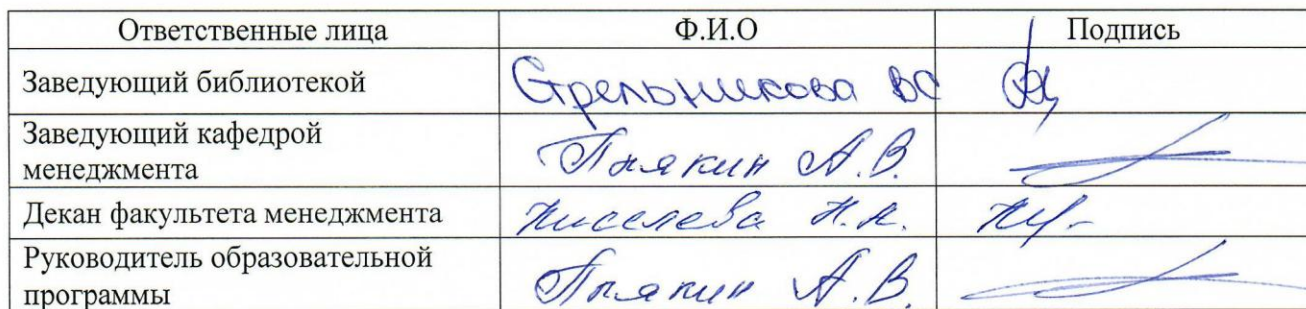 Ответственные лица Ф.И.О Подпись
Заведующий библиотекой Стрельникова ВС
Заведующий кафедрой
менеджмента А.В.
Декан факультета менеджмента Киселева Н.Н.
Руководитель образовательной
программы А.В.